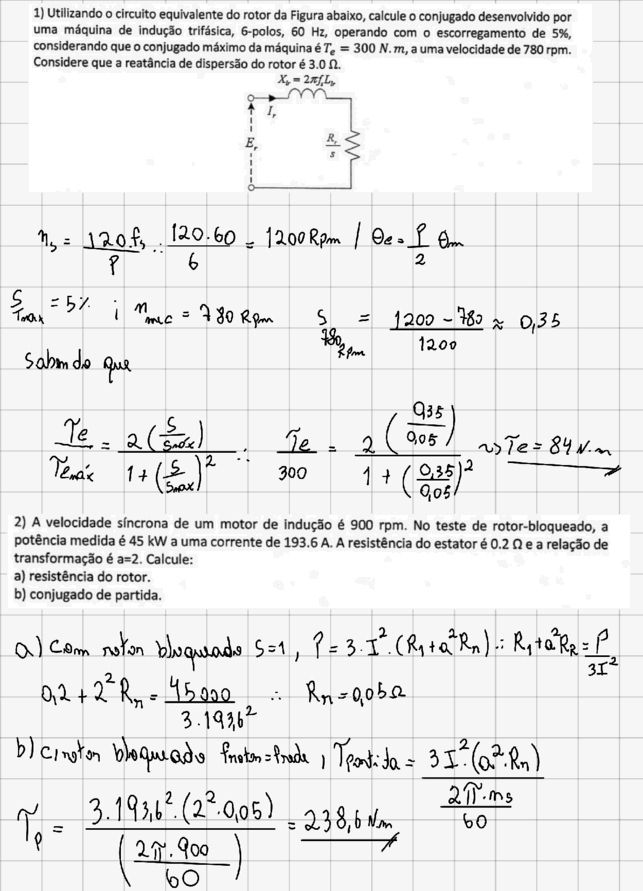 1) Utilizando o circuito equivalente do rotor da Figura abaixo, calcule o conjugado desenvolvido por
uma máquina de indução trifásica, 6-polos, 60 Hz, operando com o escorregamento de 5%,
considerando que o conjugado máximo da máquina é Tₑ = 300 N.m, a uma velocidade de 780 rpm.
Considere que a reatância de dispersão do rotor é 3.0 Ω.
Xₗᵣ = 2πfᵣLₗᵣ
Iᵣ
Eᵣ
Rᵣ/s
ns = 120.fs/P ∴ 120.60/6 = 1200 Rpm / θe = P/2 θm
S Tmax = 5% ; n mec = 780 Rpm S 780 Rpm = (1200 - 780)/1200 ≈ 0,35
Sabendo que
Te/Temáx = 2(S/Smáx)/(1 + (S/Smax)²) ∴ Te/300 = 2(0,35/0,05)/(1 + (0,35/0,05)²) ⇝ Te = 84 N.m
2) A velocidade síncrona de um motor de indução é 900 rpm. No teste de rotor-bloqueado, a
potência medida é 45 kW a uma corrente de 193.6 A. A resistência do estator é 0.2 Ω e a relação de
transformação é a=2. Calcule:
a) resistência do rotor.
b) conjugado de partida.
a) Com rotor bloqueado S=1, P = 3.I².(R₁+a²Rr) ∴ R₁+a²RR = P/3I²
0,2 + 2²Rr = 45000/3.193,6² ∴ Rr = 0,05Ω
b) c/ rotor bloqueado frotor=frede, Tpartida = 3I².(a².Rr)/(2π.ns/60)
Tp = 3.193,6².(2².0,05)/(2π.900/60) = 238,6 Nm